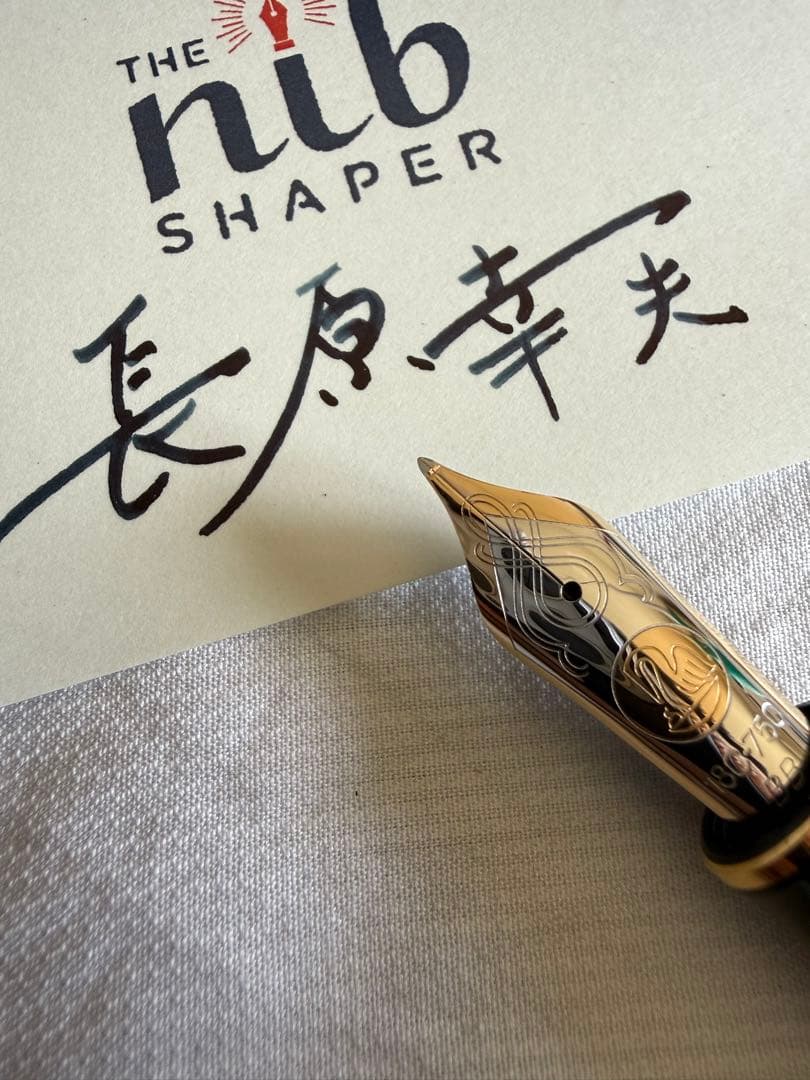 THE
nib
SHAPER
長原幸夫
18C-750
BB